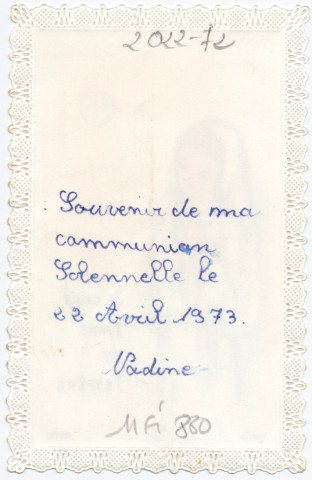 2022-72
Souvenir de ma
communion
Solennelle le
22 Avril 1973.
Nadine
11 Fi 880